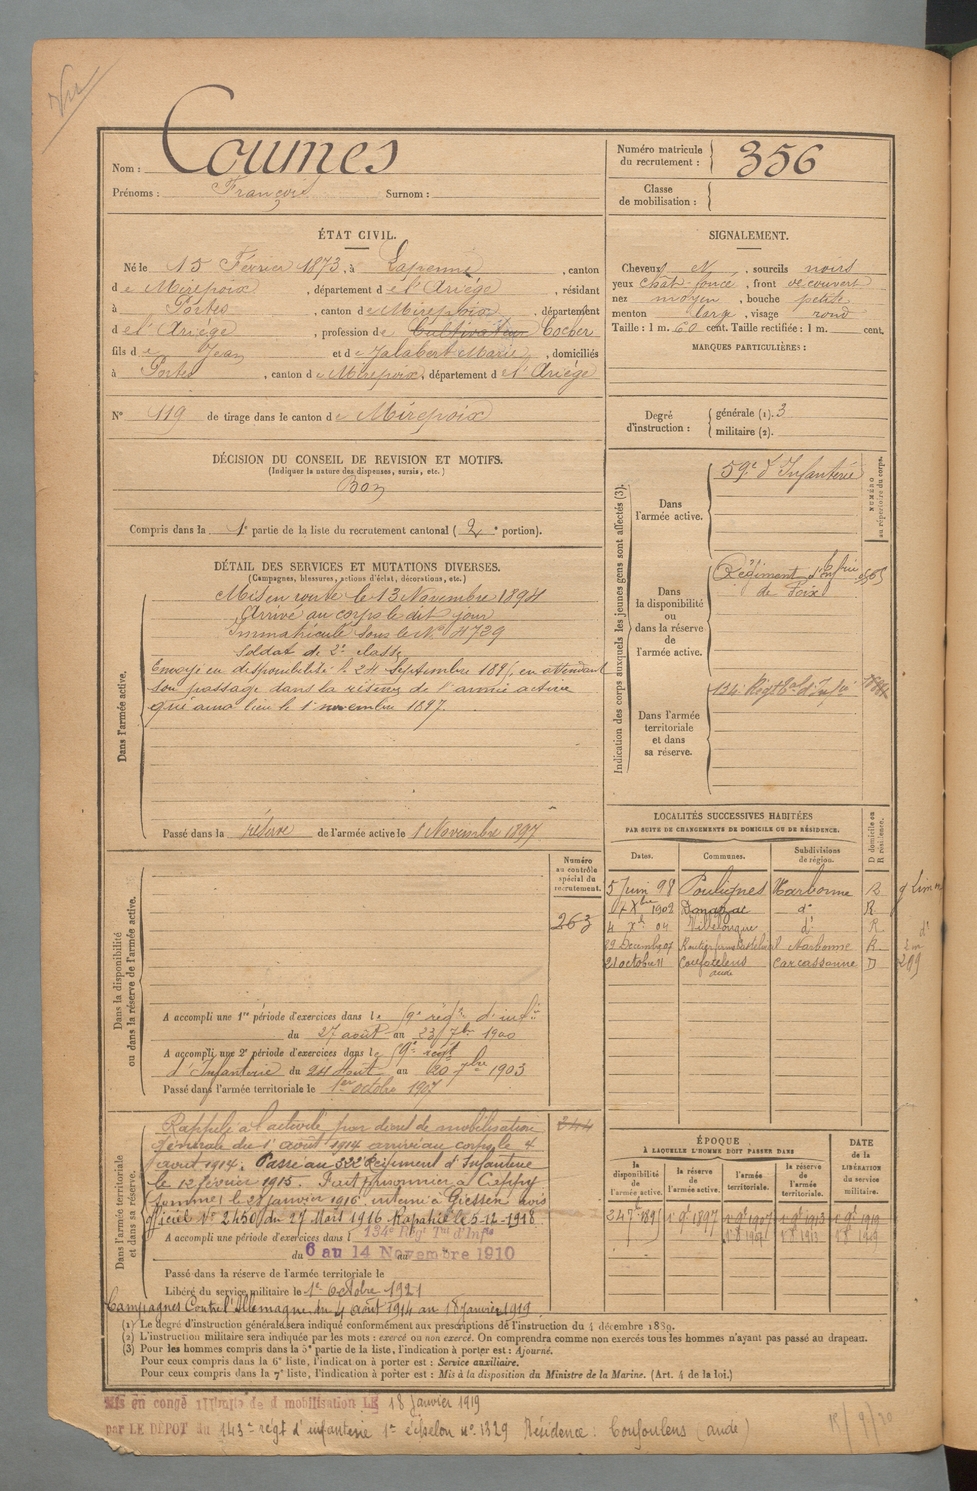 Vu
Nom : Counes
Prénoms : François Surnom :
Numéro matricule du recrutement : 356
Classe de mobilisation :
ÉTAT CIVIL.
Né le 15 Février 1873, à Lapenne, canton
de Mirepoix, département de l'Ariège, résidant
à Portes, canton de Mirepoix, département
de l'Ariège, profession de Cultivateur Cocher
fils de Jean et de Jalabert Marie, domiciliés
à Portes, canton de Mirepoix, département de l'Ariège
N° 119 de tirage dans le canton de Mirepoix
SIGNALEMENT.
Cheveux N, sourcils noirs
yeux chât. foncé, front découvert
nez moyen, bouche petite
menton large, visage rond
Taille : 1 m. 60 cent. Taille rectifiée : 1 m. cent.
MARQUES PARTICULIÈRES :
Degré d'instruction : générale (1). 3
militaire (2).
DÉCISION DU CONSEIL DE REVISION ET MOTIFS.
(Indiquer la nature des dispenses, sursis, etc.)
Bon
Compris dans la 1e partie de la liste du recrutement cantonal (2e portion).
DÉTAIL DES SERVICES ET MUTATIONS DIVERSES.
(Campagnes, blessures, actions d'éclat, décorations, etc.)
Dans l'armée active.
Mis en route le 13 Novembre 1894
Arrivé au corps le dit jour
Immatriculé sous le N° 4729
Soldat de 2e classe
Envoyé en disponibilité le 24 Septembre 1895, en attendant
son passage dans la réserve de l'armée active
qui aura lieu le 1 novembre 1897.
Passé dans la réserve de l'armée active le 1 Novembre 1897
Indication des corps auxquels les jeunes gens sont affectés (3).
Dans l'armée active. 59e d'Infanterie
NUMÉRO au répertoire du corps.
Dans la disponibilité ou dans la réserve de l'armée active.
Régiment d'Infrie
de Foix
Dans l'armée territoriale et dans sa réserve.
134 Régt Tal d'Infrie
LOCALITÉS SUCCESSIVES HABITÉES
PAR SUITE DE CHANGEMENTS DE DOMICILE OU DE RÉSIDENCE.
Dates. Communes. Subdivisions de région. D domicile ou R résidence.
5 Juin 98 Poulignes Narbonne R
Xbre 1902 Donazac do R
4 Xbre 04 Villelongue do R
29 Décembre 07 Narbonne R
21 octobre 11 Couffoulens Carcassonne D 209
aude
Dans la disponibilité ou dans la réserve de l'armée active.
Numéro au contrôle spécial du recrutement.
263
A accompli une 1re période d'exercices dans le 59e régt d'infie
du 27 août au 23 7bre 1900
A accompli une 2e période d'exercices dans le 59e régt
d'Infanterie du 24 Août au 20 7bre 1903
Passé dans l'armée territoriale le 1er octobre 1907
Dans l'armée territoriale et dans sa réserve.
244
Rappelé à l'activité par décret de mobilisation
générale du 1 août 1914 arrivé au corps le 4
août 1914. Passé au 322e Régiment d'Infanterie
le 12 février 1915. Fait prisonnier à Cappy
(Somme) le 28 janvier 1916 interné à Giessen avis
officiel N° 2450 du 27 Mars 1916 Rapatrié le 5-12-1918
A accompli une période d'exercices dans l 134e Régt Tal d'Infie
du 6 au 14 Novembre 1910
Passé dans la réserve de l'armée territoriale le
Libéré du service militaire le 1er Octobre 1921
Campagnes Contre l'Allemagne du 4 août 1914 au 18 Janvier 1919
ÉPOQUE
À LAQUELLE L'HOMME DOIT PASSER DANS
la disponibilité de l'armée active. la réserve de l'armée active. l'armée territoriale. la réserve de l'armée territoriale.
DATE de la LIBÉRATION du service militaire.
24 7bre 1895 1 9bre 1897 1 9bre 1907 1 9bre 1913 1 9bre 1919
1 8bre 1907 1 8bre 1913 1 8bre 1919
(1) Le degré d'instruction générale sera indiqué conformément aux prescriptions de l'instruction du 4 décembre 1889.
(2) L'instruction militaire sera indiquée par les mots : exercé ou non exercé. On comprendra comme non exercés tous les hommes n'ayant pas passé au drapeau.
(3) Pour les hommes compris dans la 5e partie de la liste, l'indication à porter est : Ajourné.
Pour ceux compris dans la 6e liste, l'indication à porter est : Service auxiliaire.
Pour ceux compris dans la 7e liste, l'indication à porter est : Mis à la disposition du Ministre de la Marine. (Art. 4 de la loi.)
Mis en congé illimité de démobilisation LE 18 Janvier 1919
par LE DEPOT du 143e régt d'infanterie 1er échelon No. 1329 Résidence : Coufoulens (aude)